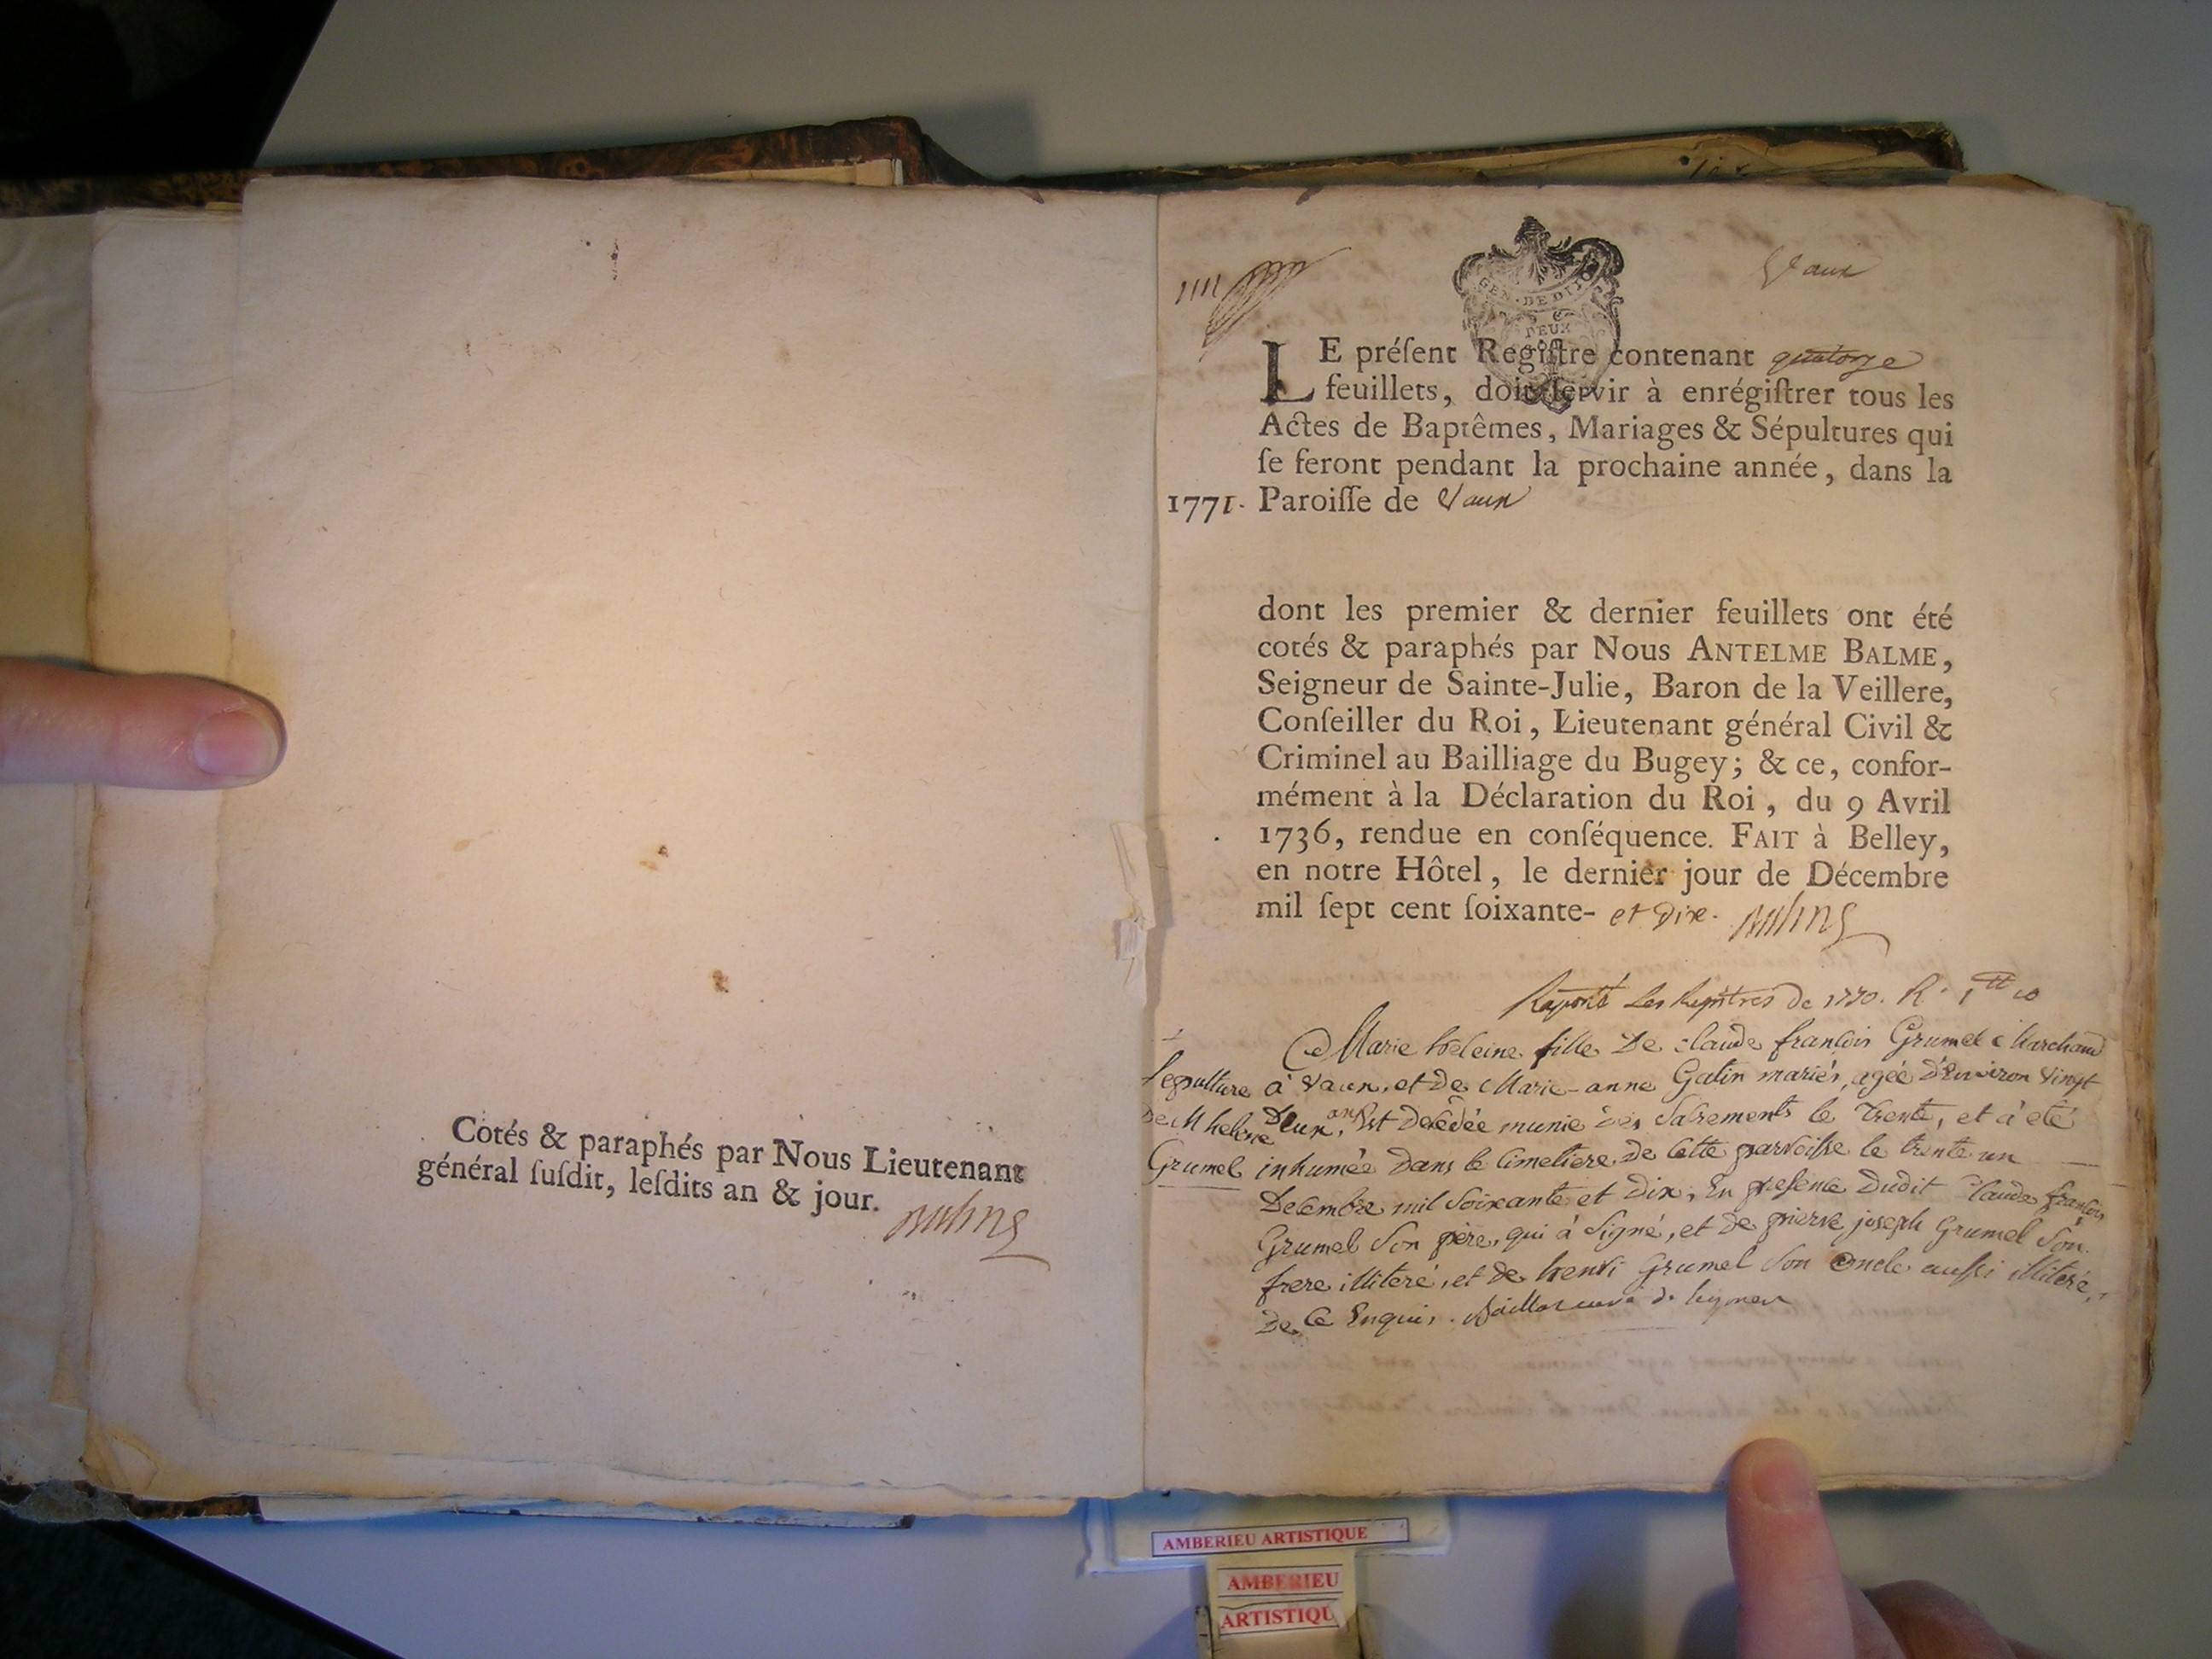 Cotés & paraphés par Nous Lieutenant
général suſdit, leſdits an & jour.
Vaux
GEN. DE DIJON
DEUX
LE préſent Regiſtre contenant quatorze
feuillets, doit ſervir à enrégiſtrer tous les
Actes de Baptêmes, Mariages & Sépultures qui
ſe feront pendant la prochaine année, dans la
1771. Paroiſſe de Vaux
dont les premier & dernier feuillets ont été
cotés & paraphés par Nous ANTELME BALME,
Seigneur de Sainte-Julie, Baron de la Veillere,
Conſeiller du Roi, Lieutenant général Civil &
Criminel au Bailliage du Bugey; & ce, confor-
mément à la Déclaration du Roi, du 9 Avril
1736, rendue en conſéquence. FAIT à Belley,
en notre Hôtel, le dernier jour de Décembre
mil ſept cent ſoixante- et dix.
Les Regitres de 1770. R.
Marie heleine fille De claude françois Grumel Marchand
Sepulture
à vaux, et de Marie-anne Galin mariés, agée d'environ vingt
De M helene
Deux ans, Est decedée munie des sacrements le trente, et à eté
Grumel
inhumée dans le cimetiere de cette parroisse le trente un
Decembre mil soixante et dix, En presence dudit claude françois
Grumel son père, qui à signé, et de pierre joseph Grumel son
frere illiteré, et de henri Grumel son oncle aussi illiteré,
de ce Enquis.
AMBERIEU ARTISTIQUE
AMBERIEU
ARTISTIQU